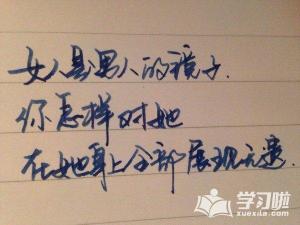 女人是男人的镜子.
你怎样对她
在她身上全部展现无遗.
学习啦
xuexila.com